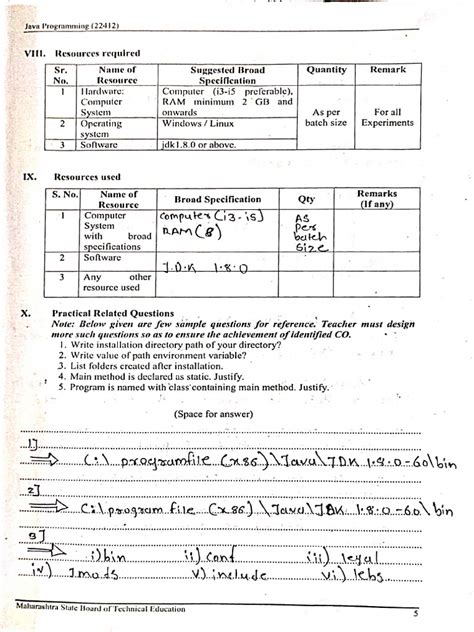 Java Programming (22412)
VIII. Resources required
Sr. No. Name of Resource Suggested Broad Specification Quantity Remark
1 Hardware: Computer System Computer (i3-i5 preferable), RAM minimum 2 GB and onwards As per batch size For all Experiments
2 Operating system Windows / Linux
3 Software jdk1.8.0 or above.
IX. Resources used
S. No. Name of Resource Broad Specification Qty Remarks (If any)
1 Computer System with broad specifications Computer (i3-i5) RAM (8) As per batch size
2 Software J.D.K 1.8.0
3 Any other resource used
X. Practical Related Questions
Note: Below given are few sample questions for reference. Teacher must design
more such questions so as to ensure the achievement of identified CO.
1. Write installation directory path of your directory?
2. Write value of path environment variable?
3. List folders created after installation.
4. Main method is declared as static. Justify.
5. Program is named with class containing main method. Justify.
(Space for answer)
1]
⇒ C:\ programfile (x86) \Java\JDK 1.8.0-60\bin
2]
⇒ C:\program file (x86) \Java\JDK 1.8.0-60\bin
3]
⇒ i) bin ii) conf iii) legal
iv) Jmods v) include vi) lebs
Maharashtra State Board of Technical Education
5